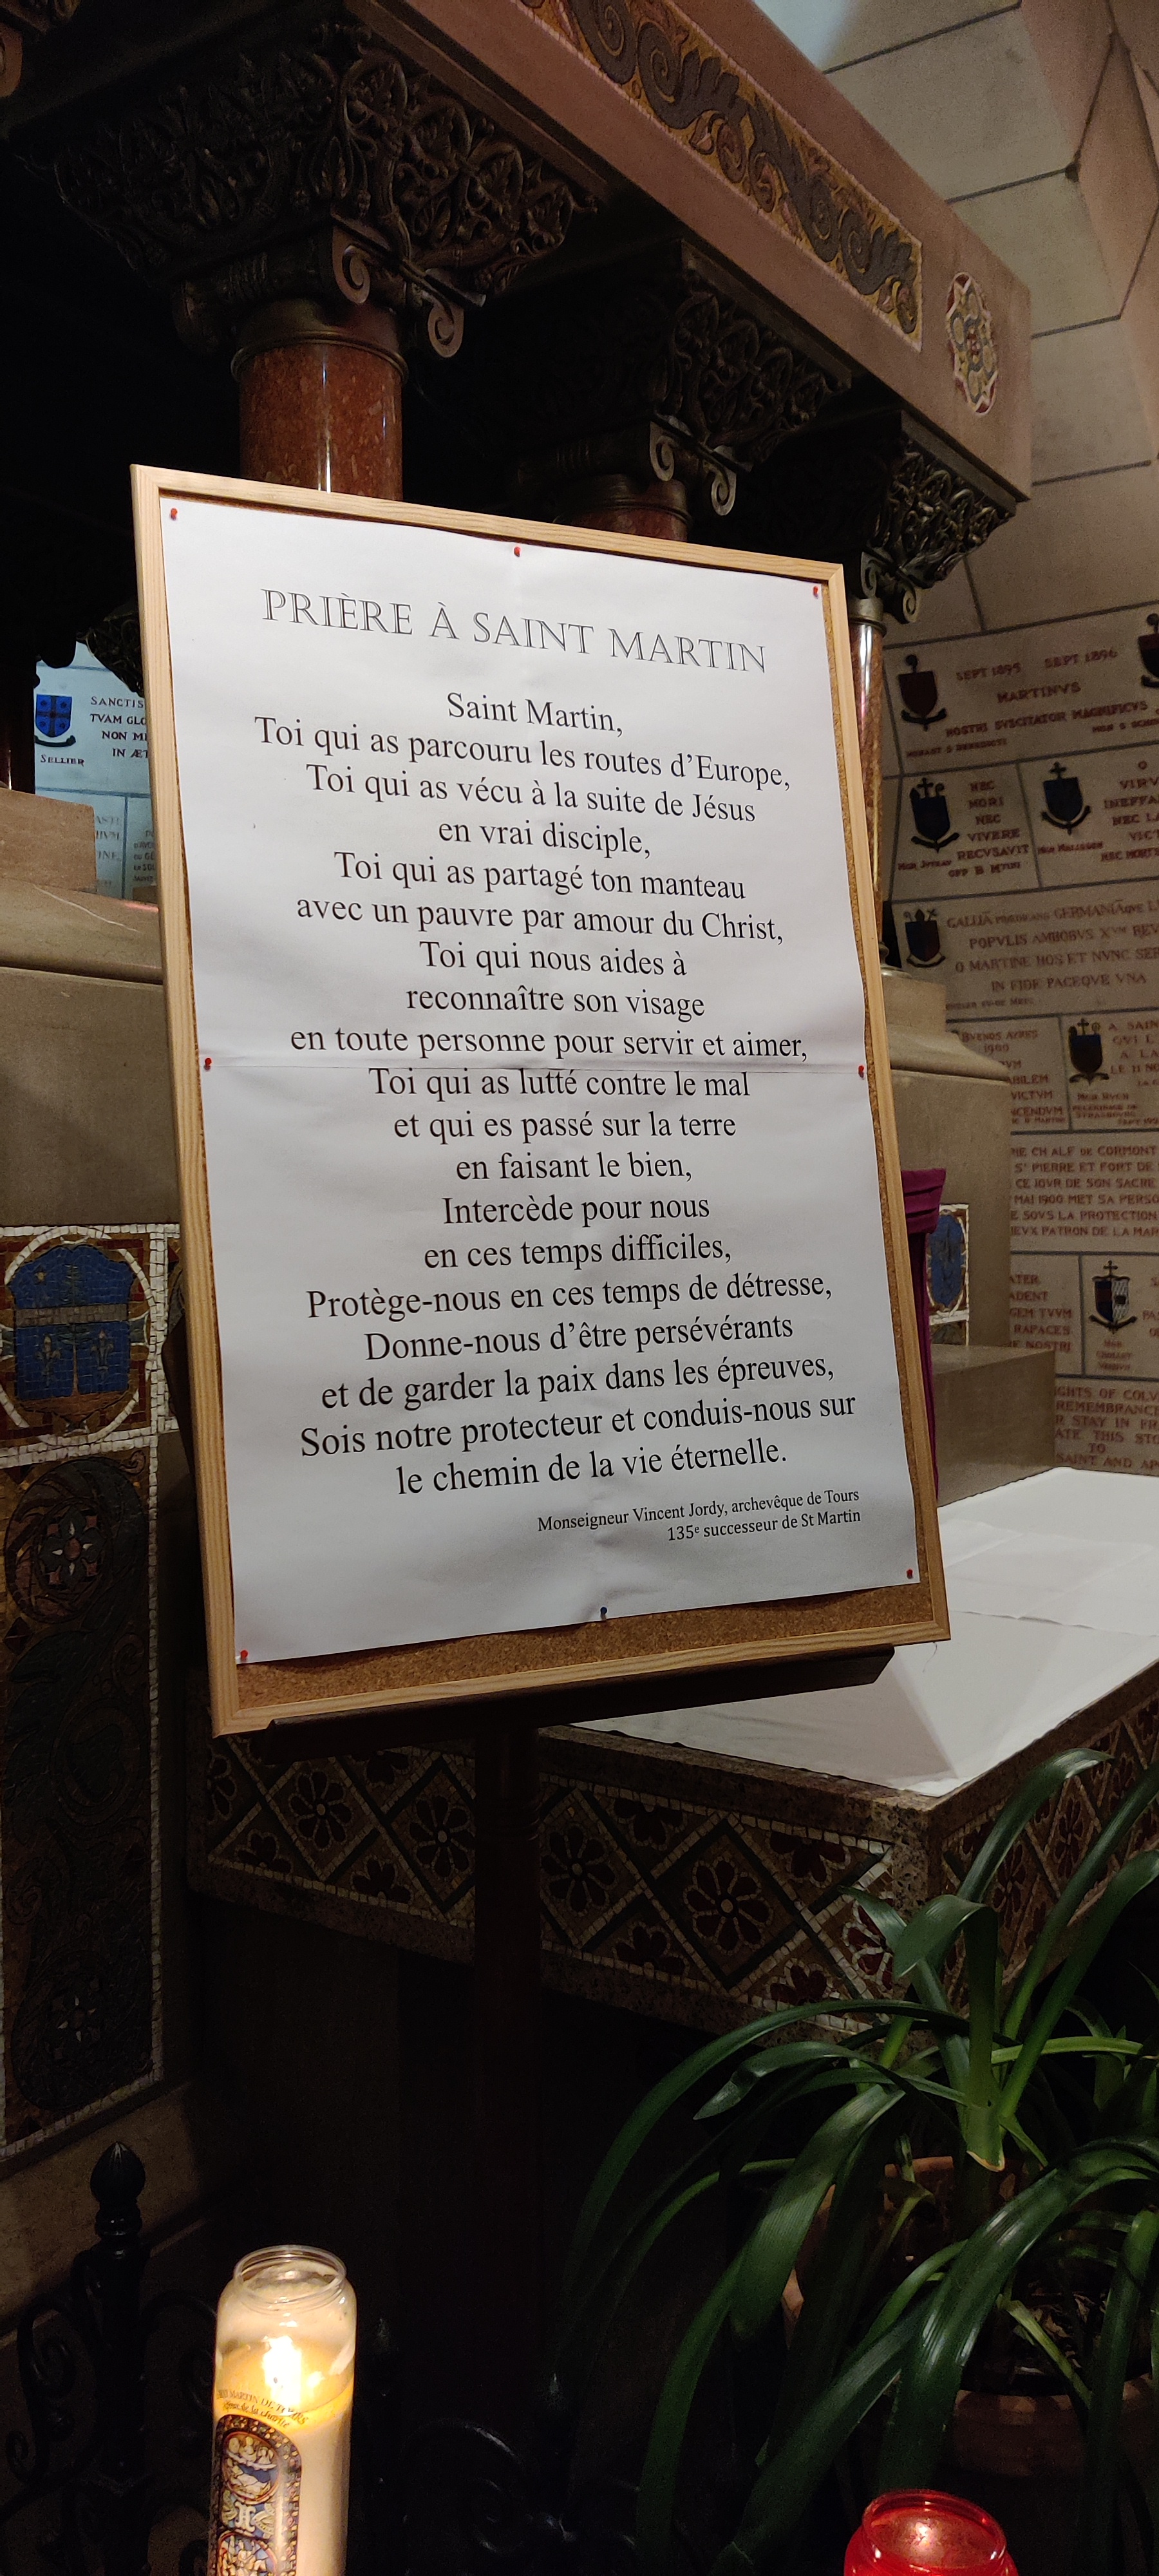 PRIÈRE À SAINT MARTIN
Saint Martin,
Toi qui as parcouru les routes d'Europe,
Toi qui as vécu à la suite de Jésus
en vrai disciple,
Toi qui as partagé ton manteau
avec un pauvre par amour du Christ,
Toi qui nous aides à
reconnaître son visage
en toute personne pour servir et aimer,
Toi qui as lutté contre le mal
et qui es passé sur la terre
en faisant le bien,
Intercède pour nous
en ces temps difficiles,
Protège-nous en ces temps de détresse,
Donne-nous d'être persévérants
et de garder la paix dans les épreuves,
Sois notre protecteur et conduis-nous sur
le chemin de la vie éternelle.
Monseigneur Vincent Jordy, archevêque de Tours
135e successeur de St Martin
SANCTIS
TVAM GLO
NON M
IN ÆT
SELLIER
SEPT 1895 SEPT 1896
MARTINVS
NOSTRI SVSCITATOR MAGNIFICVS
NEC
MORI
NEC
VIVERE
RECVSAVIT
O
VIRV
INEFFA
NEC LA
VICT
NEC MORT
GALLIA GERMANIAQVE
POPVLIS AMBOBVS
O MARTINE HOS ET NVNC SER
IN FIDE PACEQVE VNA
BVENOS AYRES
1900
VICTVM
A SAIN
QVI L
A LA
LE 11 NO
CH ALF DE CORMONT
St PIERRE ET FORT DE
CE JOVR DE SON SACRE
MAI 1900 MET SA PERSO
E SOVS LA PROTECTION
IEVX PATRON DE LA MAR
ATER
ADENT
GEM TVVM
RAPACES
NOSTRI
IGHTS OF COLV
REMEMBRANCE
R STAY IN FR
ATE THIS STO
TO
SAINT AND AP
MARTIN DE TOURS
de la charité